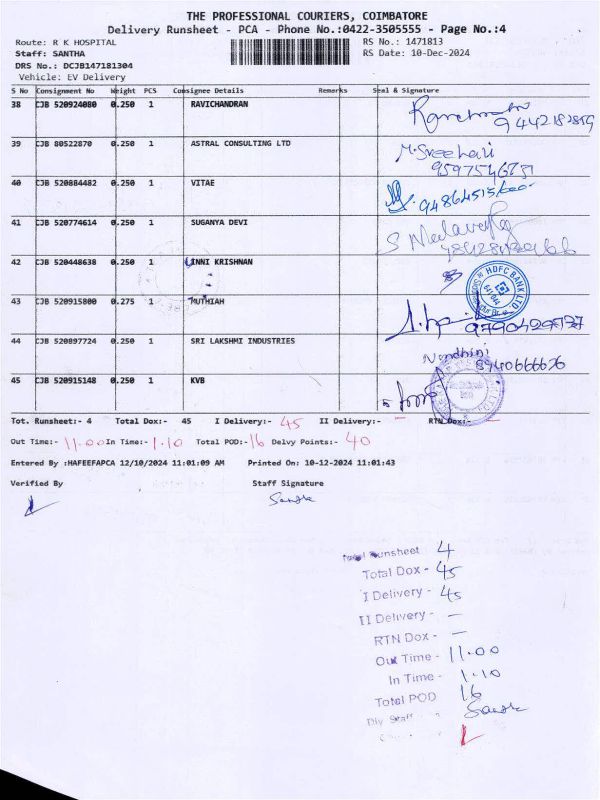 THE PROFESSIONAL COURIERS, COIMBATORE
Delivery Runsheet - PCA - Phone No.:0422-3505555 - Page No.:4
Route: R K HOSPITAL RS No.: 1471813
Staff: SANTHA RS Date: 10-Dec-2024
DRS No.: DCJB147181304
Vehicle: EV Delivery
S No Consignment No Weight PCS Consignee Details Remarks Seal & Signature
38 CJB 520924080 0.250 1 RAVICHANDRAN
39 CJB 80522870 0.250 1 ASTRAL CONSULTING LTD
M. Sreehari
40 CJB 520884482 0.250 1 VITAE
41 CJB 520774614 0.250 1 SUGANYA DEVI
42 CJB 520448638 0.250 1 UNNI KRISHNAN
HDFC BANK LTD
43 CJB 520915800 0.275 1 MUTHIAH
44 CJB 520897724 0.250 1 SRI LAKSHMI INDUSTRIES
Nandhini
8940666676
45 CJB 520915148 0.250 1 KVB
Tot. Runsheet:- 4 Total Dox:- 45 I Delivery:- 45 II Delivery:- — RTN Dox:- —
Out Time:- 11.00 In Time:- 1.10 Total POD:- 16 Delvy Points:- 40
Entered By :HAFEEFAPCA 12/10/2024 11:01:09 AM Printed On: 10-12-2024 11:01:43
Verified By Staff Signature
Total Runsheet 4
Total Dox - 45
I Delivery - 45
II Delivery - —
RTN Dox - —
Out Time - 11.00
In Time - 1.10
Total POD 16
Dly Staff